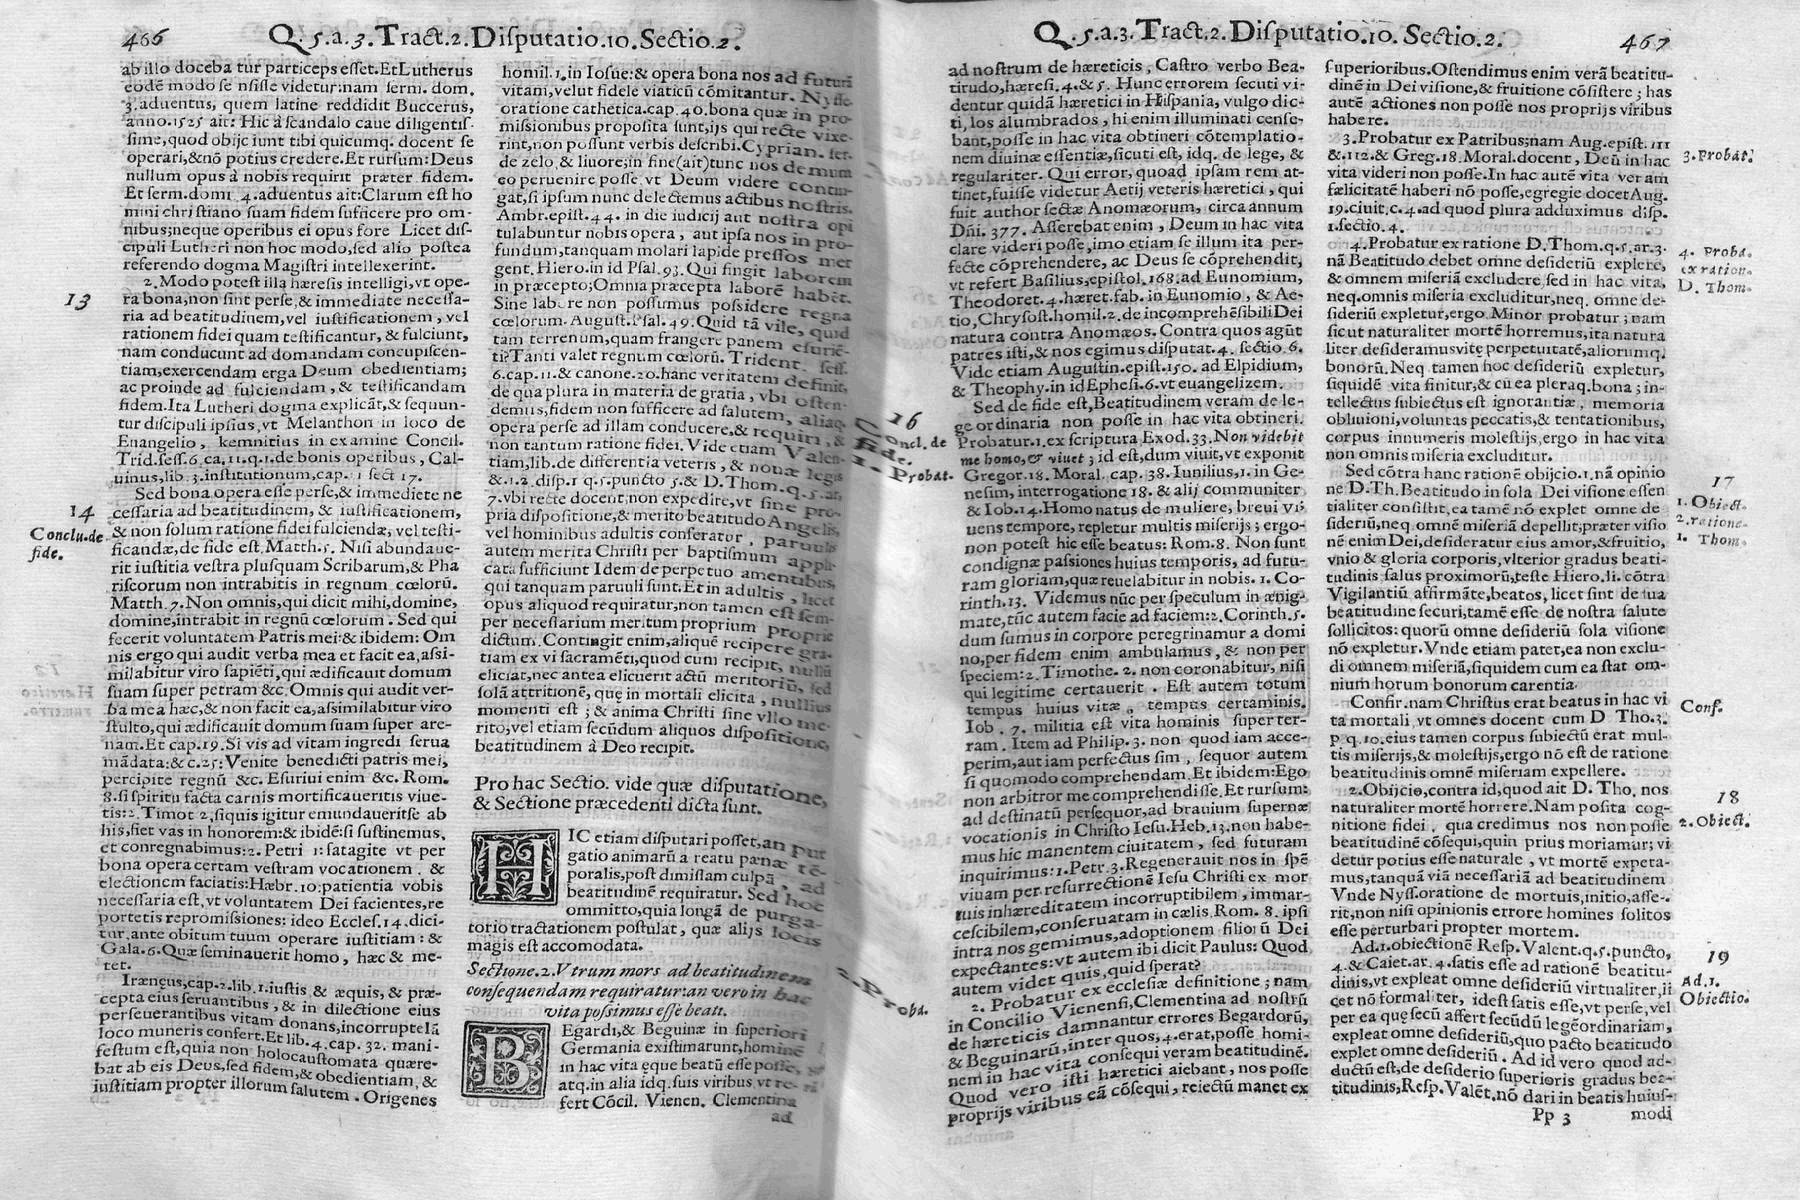 466
Q.5.a.3.Tract.2.Disputatio.10.Sectio.2.
ab illo doceba tur particeps esset.Et Lutherus
eodē modo se nsisse videtur:nam serm. dom.
3.aduentus, quem latine reddidit Buccerus,
anno.1525 ait: Hic à scandalo caue diligentis-
sime,quod obijciunt tibi quicumq. docent se
operari,&nō potius credere.Et rursum:Deus
nullum opus à nobis requirit præter fidem.
Et serm.domi 4.aduentus ait:Clarum est ho
mini christiano suam fidem sufficere pro om-
nibus;neque operibus ei opus fore Licet dis-
cipuli Lutheri non hoc modo,sed alio postea
referendo dogma Magistri intellexerint.
13
2.Modo potest illa hæresis intelligi,vt ope-
ra bona,non sint perse,& immediate necessa-
ria ad beatitudinem,vel iustificationem, vel
rationem fidei quam testificantur, & fulciunt,
nam conducunt ad domandam concupiscen-
tiam,exercendam erga Deum obedientiam;
ac proinde ad fulciendam, & testificandam
fidem.Ita Lutheri dogma explicāt,& sequun-
tur discipuli ipsius,vt Melanthon in loco de
Euangelio, kemnitius in examine Concil.
Trid.sess.6.ca.11.q.1.de bonis operibus, Cal-
uinus,lib.3.institutionum,cap.1 sect 17.
14
Conclu.de
fide.
Sed bona opera esse perse,& immediete ne
cessaria ad beatitudinem, & iustificationem,
& non solum ratione fidei fulciendæ, vel testi-
ficandæ,de fide est.Matth.5. Nisi abundaue-
rit iustitia vestra plusquam Scribarum,& Pha
riscorum non intrabitis in regnum cœlorū.
Matth.7.Non omnis,qui dicit mihi,domine,
domine,intrabit in regnū cœlorum. Sed qui
fecerit voluntatem Patris mei:& ibidem: Om
nis ergo qui audit verba mea et facit ea,assi-
milabitur viro sapiēti,qui ædificauit domum
suam super petram &c.Omnis qui audit ver-
ba mea hæc,& non facit ea,assimilabitur viro
stulto,qui ædificauit domum suam super are-
nam.Et cap.19.Si vis ad vitam ingredi serua
mādata:& c.25:Venite benedicti patris mei,
percipite regnū &c. Esuriui enim &c. Rom.
8.si spiritu facta carnis mortificaueritis viue-
tis:2. Timot 2,siquis igitur emundaueritse ab
his,fiet vas in honorem:& ibidē:si sustinemus,
et conregnabimus:2. Petri 1:satagite vt per
bona opera certam vestram vocationem, &
electionem faciatis:Hæbr.10:patientia vobis
necessaria est,vt voluntatem Dei facientes,re
portetis repromissiones: ideo Eccles.14.dici-
tur,ante obitum tuum operare iustitiam: &
Gala.6.Quæ seminauerit homo, hæc & me-
tet.
Iræneus,cap.2.lib.1.iustis & æquis, & præ-
cepta eius seruantibus, & in dilectione eius
perseuerantibus vitam donans,incorruptelā
loco muneris confert.Et lib.4.cap. 32. mani-
festum est,quia non holocaustomata quære-
bat ab eis Deus,sed fidem,& obedientiam, &
iustitiam propter illorum salutem. Origenes
homil.1.in Iosue:& opera bona nos ad futuri
vitam,velut fidele viaticū cōmitantur. Nysse
oratione cathetica.cap.40.bona quæ in pro-
missionibus proposita sunt,ijs qui recte vixe-
rint,non possunt verbis describi.Cyprian. ser.
de zelo,& liuore;in fine(ait)tunc nos demum
eo peruenire posse vt Deum videre contin-
gat,si ipsum nunc delectemus actibus nostris.
Ambr.epist.44. in die iudicij aut nostra opi
tulabuntur nobis opera, aut ipsa nos in pro-
fundum,tanquam molari lapide pressos mer
gent.Hiero.in id Psal.93.Qui fingit laborem
in præcepto;Omnia præcepta laborē habēt.
Sine labore non possumus possidere regna
cœlorum.August.Psal.49.Quid tā vile, quid
tam terrenum,quam frangere panem esurie-
ti?Tanti valet regnum cœlorū. Trident. sess.
6.cap.11.& canone.20.hanc veritatem definit,
de qua plura in materia de gratia, vbi osten-
demus,fidem non sufficere ad salutem, aliaq.
opera perse ad illam conducere,& requiri, &
non tantum ratione fidei. Vide etiam Valen-
tiam,lib.de differentia veteris, & nouæ legis
&.1.2.disp.1 q.5.puncto 5.& D.Thom.q.5.ar.
7.vbi recte docent,non expedire,vt sine pro-
pria dispositione,& merito beatitudo Angelis,
vel hominibus adultis conferatur, paruulis
autem merita Christi per baptismum appli-
cata sufficiunt Idem de perpetuo amentibus,
qui tanquam paruuli sunt.Et in adultis, licet
opus aliquod requiratur,non tamen est sem-
per necessarium meritum proprium proprie
dictum.Contingit enim,aliquē recipere gra-
tiam ex vi sacramēti,quod cum recipit, nullū
eliciat,nec antea elicuerit actū meritoriū, sed
solā attritionē, quę in mortali elicita, nullius
momenti est; & anima Christi sine vllo me-
rito,vel etiam secūdum aliquos dispositione,
beatitudinem à Deo recipit.
Pro hac Sectio. vide quæ disputatione,
& Sectione præcedenti dicta sunt.
HIC etiam disputari posset,an pur
gatio animarū a reatu pœnæ tē-
poralis,post dimissam culpā, ad
beatitudinē requiratur. Sed hoc
ommitto,quia longā de purga-
torio tractationem postulat, quæ alijs locis
magis est accomodata.
Sectione.2.Vtrum mors ad beatitudinem
consequendam requiratur:an vero in hac
vita possimus esse beati.
BEgardi,& Beguinæ in superiori
Germania existimarunt,hominē
in hac vita ęque beatū esse posse,
atq.in alia idq.suis viribus vt re-
fert Cōcil. Vienen. Clementina
ad
Q.5.a.3.Tract.2.Disputatio.10.Sectio.2.
467
ad nostrum de hæreticis, Castro verbo Bea-
titudo,hæresi.4.& 5. Hunc errorem secuti vi-
dentur quidā hæretici in Hispania, vulgo dic-
ti, los alumbrados, hi enim illuminati cense-
bant,posse in hac vita obtineri cōtemplatio-
nem diuinæ essentiæ,sicuti est, idq. de lege, &
regulariter. Qui error, quoad ipsam rem at-
tinet,fuisse videtur Aetij veteris hæretici, qui
fuit author sectæ Anomæorum, circa annum
Dñi. 377. Asserebat enim, Deum in hac vita
clare videri posse,imo etiam se illum ita per-
fecte cōprehendere, ac Deus se cōprehendit,
vt refert Basilius,epistol.168.ad Eunomium,
Theodoret.4.hæret.fab.in Eunomio, & Ae-
tio,Chrysost.homil.2.de incomprehēsibili Dei
natura contra Anomæos. Contra quos agūt
patres isti,& nos egimus disputat.4. sectio.6.
Vide etiam Augustin.epist.150. ad Elpidium,
& Theophy.in id Ephesi.6.vt euangelizem.
16
Concl.de
Fide.
1. Probat.
Sed de fide est,Beatitudinem veram de le-
ge ordinaria non posse in hac vita obtineri.
Probatur.1.ex scriptura Exod.33.Non videbit
me homo,& viuet; id est,dum viuit,vt exponit
Gregor.18. Moral. cap.38. Iunilius,1. in Ge-
nesim, interrogatione 18. & alij communiter
& Iob.14.Homo natus de muliere, breui vi-
uens tempore, repletur multis miserijs; ergo-
non potest hic esse beatus: Rom.8. Non sunt
condignæ passiones huius temporis, ad futu-
ram gloriam,quæ reuelabitur in nobis. 1. Co-
rinth.13. Videmus nūc per speculum in ænig-
mate,tūc autem facie ad faciem:2.Corinth.5.
dum sumus in corpore peregrinamur a domi
no,per fidem enim ambulamus, & non per
speciem:2.Timothe.2. non coronabitur, nisi
qui legitime certauerit. Est autem totum
tempus huius vitæ, tempus certaminis.
Iob. 7. militia est vita hominis super ter-
ram. Item ad Philip.3. non quod iam acce-
perim,aut iam perfectus sim, sequor autem
si quomodo comprehendam.Et ibidem:Ego
non arbitror me comprehendisse.Et rursum:
ad destinatū persequor,ad brauium supernæ
vocationis in Christo Iesu.Heb.13.non habe-
mus hic manentem ciuitatem, sed futuram
inquirimus:1.Petr.3.Regenerauit nos in spē
viuam per resurrectionē Iesu Christi ex mor
tuis inhæreditatem incorruptibilem, immar-
cescibilem,conseruatam in cælis.Rom. 8. ipsi
intra nos gemimus,adoptionem filiorū Dei
expectantes:vt autem ibi dicit Paulus: Quod
autem videt quis,quid sperat?
2. Proba.
2. Probatur ex ecclesiæ definitione; nam
in Concilio Vienensi,Clementina ad nostrū
de hæreticis damnantur errores Begardorū,
& Beguinarū,inter quos,4.erat,posse homi-
nem in hac vita consequi veram beatitudinē.
Quod vero isti hæretici aiebant, nos posse
proprijs viribus eā cōsequi, reiectū manet ex
superioribus.Ostendimus enim verā beatitu-
dinē in Dei visione,& fruitione cōsistere; has
autē actiones non posse nos proprijs viribus
habere.
3.Probat.
3.Probatur ex Patribus;nam Aug.epist.111
&.112.& Greg.18.Moral.docent, Deū in hac
vita videri non posse.In hac autē vita veram
fælicitatē haberi nō posse,egregie docet Aug.
19.ciuit.c.4.ad quod plura adduximus disp.
1.sectio.4.
4. Proba.
ex ration.
D. Thom.
4.Probatur ex ratione D.Thom.q.5.ar.3.
nā Beatitudo debet omne desideriū explere,
& omnem miseriā excludere,sed in hac vita,
neq.omnis miseria excluditur,neq. omne de-
sideriū expletur,ergo. Minor probatur; nam
sicut naturaliter mortē horremus,ita natura
liter desideramus vitę perpetuitatē,aliorumq.
bonorū. Neq tamen hoc desideriū expletur,
siquidē vita finitur,& cū ea pleraq.bona; in-
tellectus subiectus est ignorantiæ, memoria
obliuioni,voluntas peccatis,& tentationibus,
corpus innumeris molestijs,ergo in hac vita
non omnis miseria excluditur.
17
1. Obiect.
2.ratione-
1. Thom.
Sed cōtra hanc rationē obijcio.1.nā opinio
ne D.Th.Beatitudo in sola Dei visione essen
tialiter consistit,ea tamē nō explet omne de
sideriū,neq.omnē miseriā depellit,præter visio
nē enim Dei,desideratur eius amor,&fruitio,
vnio & gloria corporis,vlterior gradus beati-
tudinis salus proximorū,teste Hiero.li.cōtra
Vigilantiū affirmāte,beatos, licet sint de sua
beatitudine securi,tamē esse de nostra salute
sollicitos: quorū omne desideriū sola visione
nō expletur. Vnde etiam patet,ea non exclu-
di omnem miseriā,siquidem cum ea stat om-
nium horum bonorum carentia.
Conf.
Confir.nam Christus erat beatus in hac vi
ta mortali,vt omnes docent cum D Tho.3.
p q.10.eius tamen corpus subiectū erat mul-
tis miserijs,& molestijs,ergo nō est de ratione
beatitudinis omnē miseriam expellere.
18
2.Obiect.
2.Obijcio,contra id,quod ait D. Tho. nos
naturaliter mortē horrere. Nam posita cog-
nitione fidei, qua credimus nos non posse
beatitudinē cōsequi,quin prius moriamur; vi
detur potius esse naturale, vt mortē expeta-
mus,tanquā viā necessariā ad beatitudinem
Vnde Nyss.oratione de mortuis,initio,asse-
rit,non nisi opinionis errore homines solitos
esse perturbari propter mortem.
19
Ad.1.
Obiectio.
Ad.1.obiectionē Resp.Valent.q.5.puncto,
4.& Caiet.ar.4.satis esse ad rationē beatitu-
dinis,vt expleat omne desideriū virtualiter,li
cet nō formaliter, idest satis esse,vt perse,vel
per ea quę secū affert secūdū legē ordinariam,
expleat omne desideriū,quo pacto beatitudo
explet omne desideriū. Ad id vero quod ad-
ductū est,de desiderio superioris gradus bea-
titudinis,Resp.Valēt.nō dari in beatis huius-
Pp 3
modi